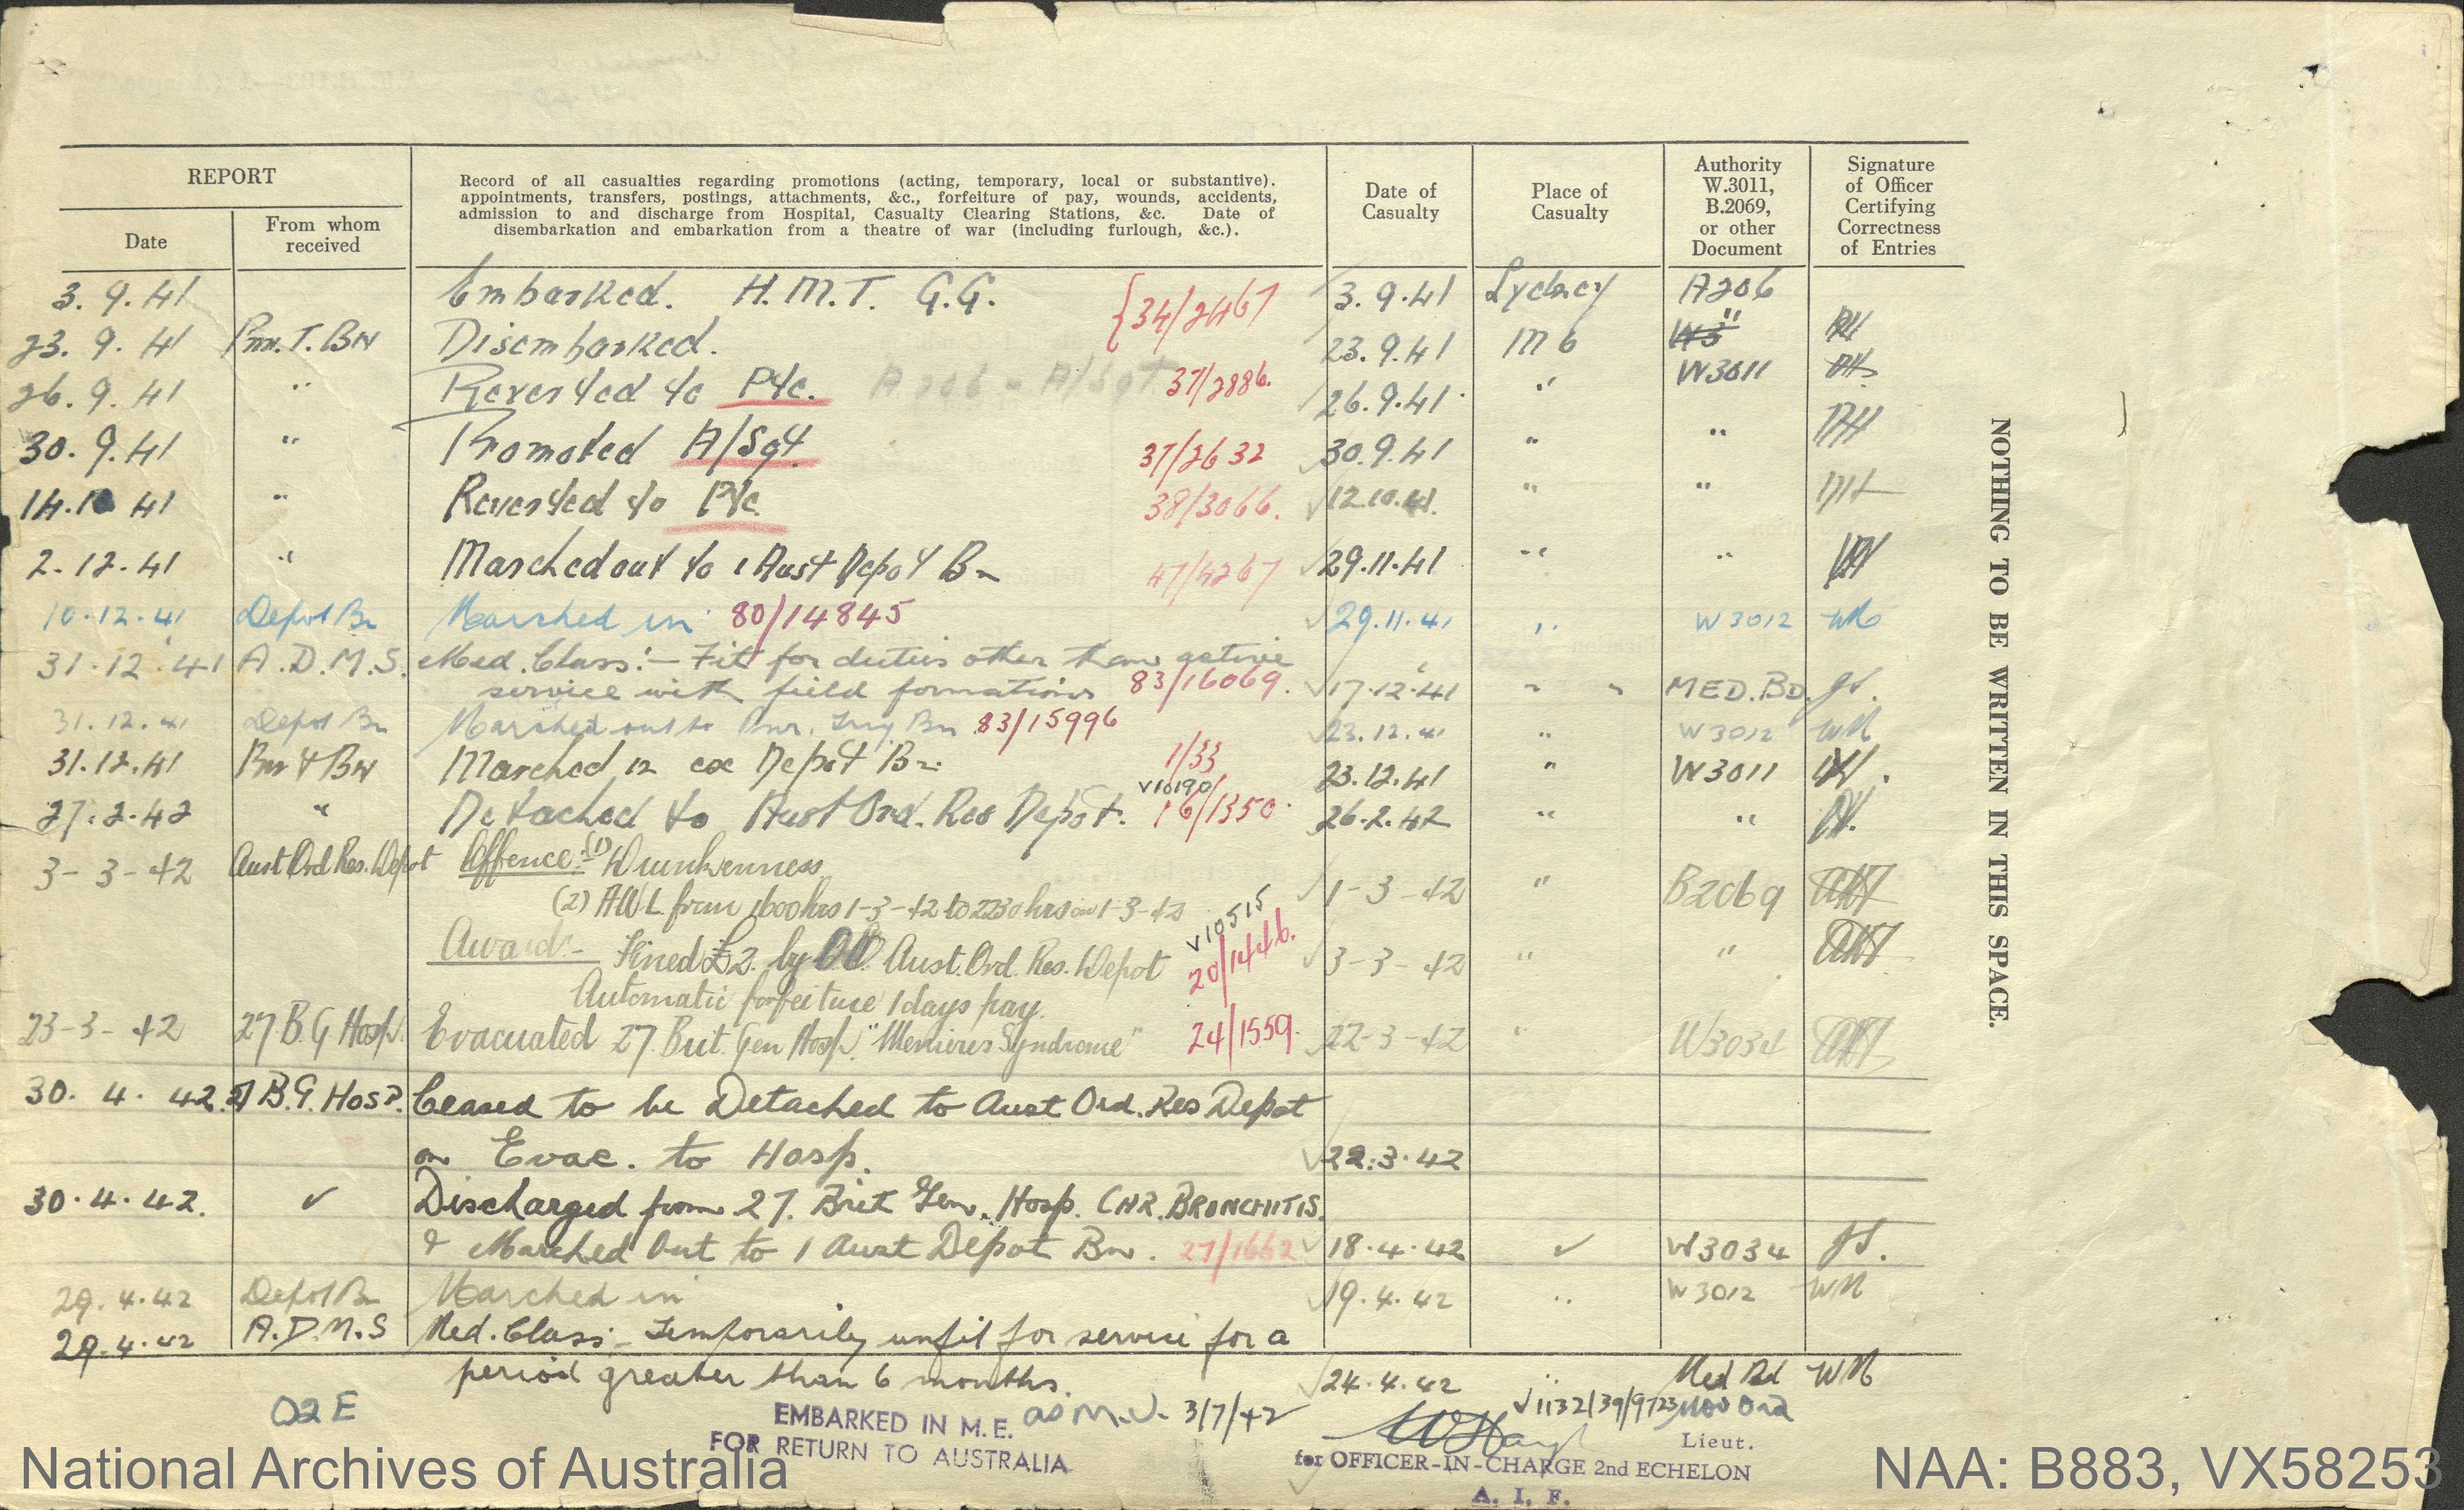 REPORT
Date
From whom received
Record of all casualties regarding promotions (acting, temporary, local or substantive).
appointments, transfers, postings, attachments, &c., forfeiture of pay, wounds, accidents,
admission to and discharge from Hospital, Casualty Clearing Stations, &c. Date of
disembarkation and embarkation from a theatre of war (including furlough, &c.).
Date of Casualty
Place of Casualty
Authority W.3011, B.2069, or other Document
Signature of Officer Certifying Correctness of Entries
3.9.41 Embarked. H.M.T. G.G. {34/2467 3.9.41 Sydney A206
23.9.41 Disembarked. 23.9.41 M6 "
26.9.41 " Reverted to Pte. A206 - A/Sgt 37/2886. 26.9.41 " W3011
30.9.41 " Promoted A/Sgt 37/2632 30.9.41 " "
14.10 41 " Reverted to Pte 38/3066. 12.10.41. " "
2.12.41 " Marched out to 1 Aust Depot Bn 47/4267 29.11.41 " "
10.12.41 Depot Bn Marched in 80/14845 29.11.41 " W3012 WM
31.12.41 A.D.M.S. Med. Class:- Fit for duties other than active
service with field formations 83/16069. 17.12.41 " " MED.BD.
31.12.41 Depot Bn Marched out to Pnr. Trg Bn 83/15996 23.12.41 " W3012 WM
31.12.41 Marched in ex Depot Bn. 1/33 23.12.41 " W3011
27.2.42 " Detached to Aust Ord. Res Depot. V10190 16/1350. 26.2.42 " "
3-3-42 Aust Ord Res. Depot Offence:- (1) Drunkenness
(2) AWL from 1600hrs 1-3-42 to 2230hrs on 1-3-42 1-3-42 " B2069
Award:- Fined £2 by OC Aust. Ord. Res. Depot V10515 20/1446. 3-3-42 " "
Automatic forfeiture 1 days pay.
23-3-42 27 B.G Hosp. Evacuated 27 Brit. Gen Hosp. "Menieres Syndrome" 24/1559. 22-3-42 " W3034
30.4.42. 27 B.G. HOSP. Ceased to be Detached to Aust Ord. Res Depot
on Evac. to Hosp. 22.3.42
30.4.42. ✓ Discharged from 27. Brit Gen. Hosp. CHR. BRONCHITIS.
& Marched Out to 1 Aust Depot Bn. 27/1662 18.4.42 ✓ W3034
29.4.42 Depot Bn Marched in 19.4.42 " W3012 WM
29.4.42 A.D.M.S Med. Class:- Temporarily unfit for service for a
period greater than 6 months. 24.4.42 " Med Bd WM
O2E
EMBARKED IN M.E. as M.U. 3/7/42 ✓1132/39/9723
FOR RETURN TO AUSTRALIA
Lieut.
for OFFICER-IN-CHARGE 2nd ECHELON
A. I. F.
NOTHING TO BE WRITTEN IN THIS SPACE.
National Archives of Australia
NAA: B883, VX58253